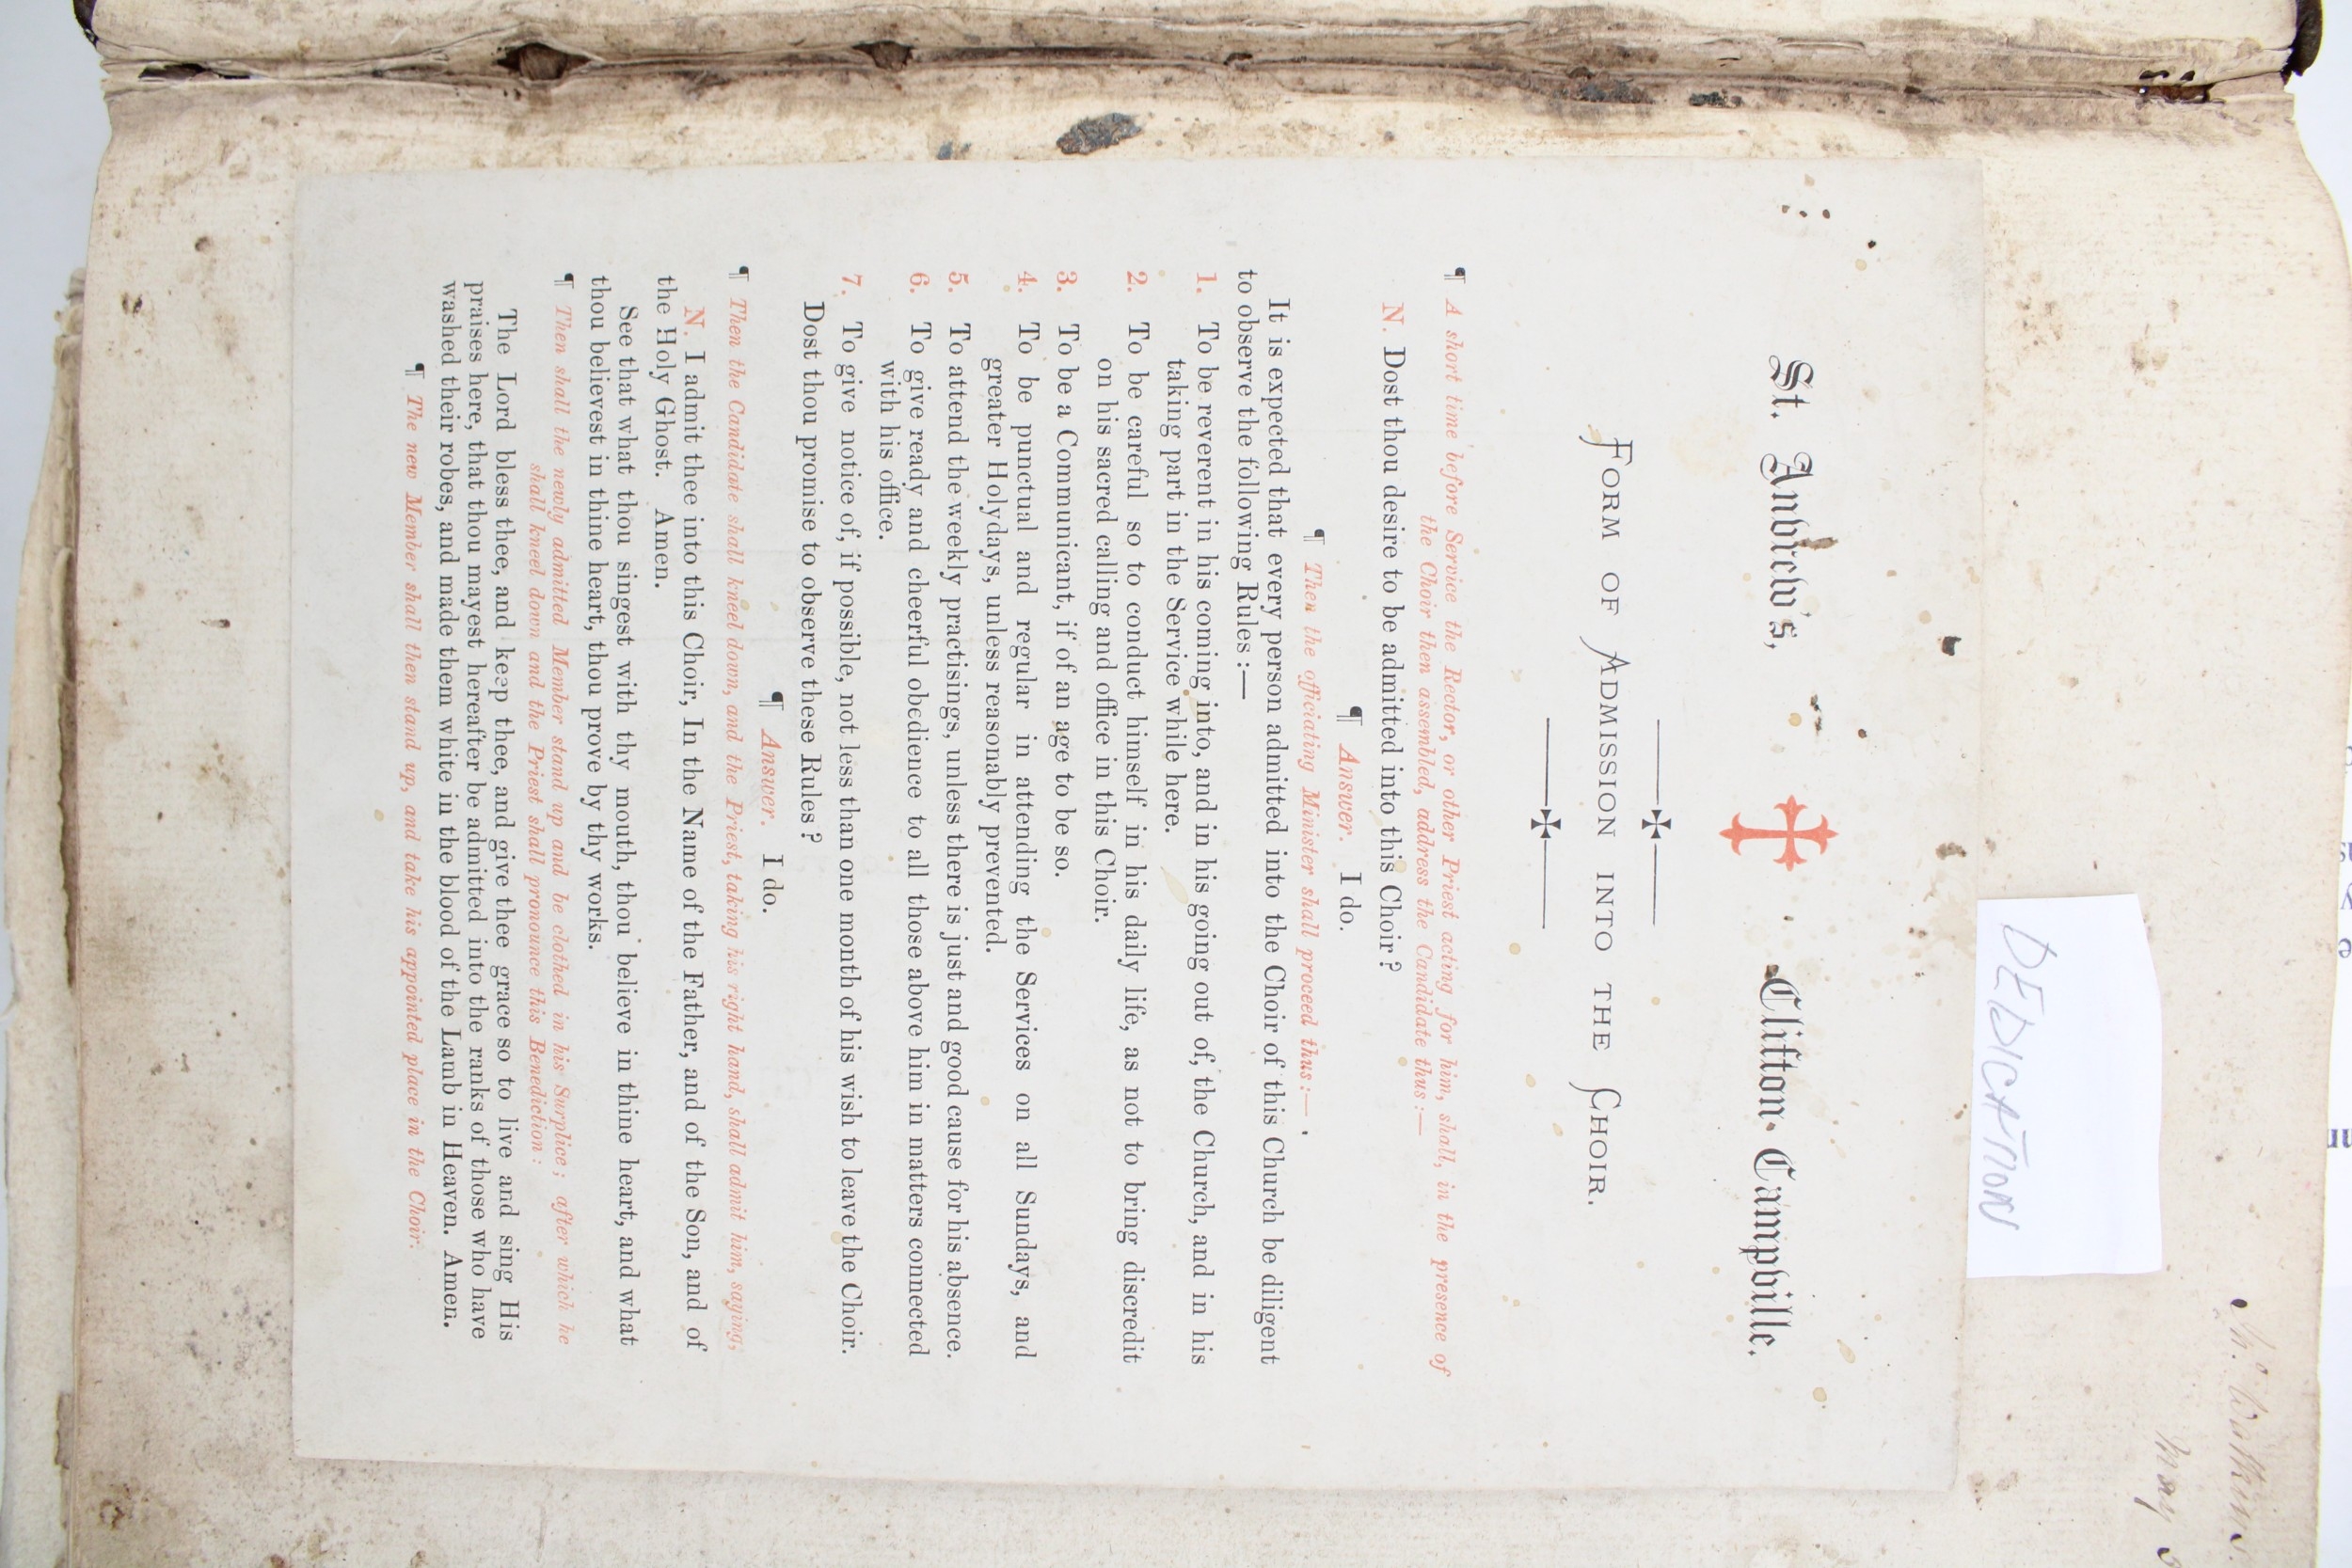 St. Andrew's, Clifton Campville.
FORM OF ADMISSION INTO THE CHOIR.
¶ A short time before Service the Rector, or other Priest acting for him, shall, in the presence of
the Choir then assembled, address the Candidate thus:—
N. Dost thou desire to be admitted into this Choir?
¶ Answer. I do.
¶ Then the officiating Minister shall proceed thus:—
It is expected that every person admitted into the Choir of this Church be diligent
to observe the following Rules:—
1. To be reverent in his coming into, and in his going out of, the Church, and in his
taking part in the Service while here.
2. To be careful so to conduct himself in his daily life, as not to bring discredit
on his sacred calling and office in this Choir.
3. To be a Communicant, if of an age to be so.
4. To be punctual and regular in attending the Services on all Sundays, and
greater Holydays, unless reasonably prevented.
5. To attend the weekly practisings, unless there is just and good cause for his absence.
6. To give ready and cheerful obedience to all those above him in matters connected
with his office.
7. To give notice of, if possible, not less than one month of his wish to leave the Choir.
Dost thou promise to observe these Rules?
¶ Answer. I do.
¶ Then the Candidate shall kneel down, and the Priest, taking his right hand, shall admit him, saying,
N. I admit thee into this Choir, In the Name of the Father, and of the Son, and of
the Holy Ghost. Amen.
See that what thou singest with thy mouth, thou believe in thine heart, and what
thou believest in thine heart, thou prove by thy works.
¶ Then shall the newly admitted Member stand up and be clothed in his Surplice; after which he
shall kneel down and the Priest shall pronounce this Benediction:
The Lord bless thee, and keep thee, and give thee grace so to live and sing His
praises here, that thou mayest hereafter be admitted into the ranks of those who have
washed their robes, and made them white in the blood of the Lamb in Heaven. Amen.
¶ The new Member shall then stand up, and take his appointed place in the Choir.
DEDICATION
Watkins
May